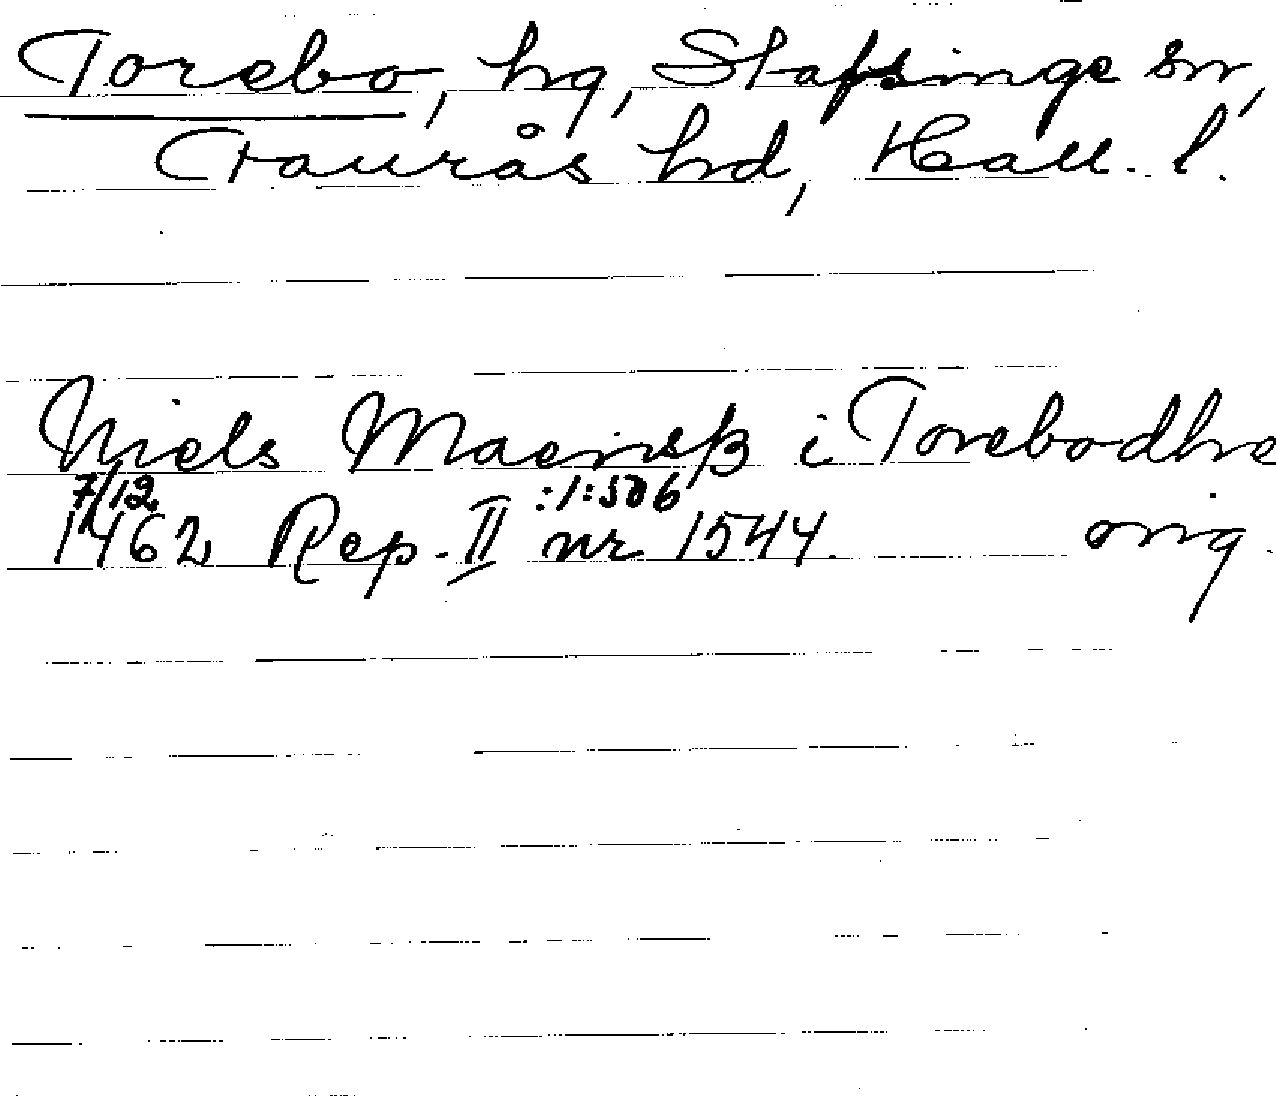 Torebo, hg, Stafsinge sn,
Faurås hd, Hall. l.
Niels Maenisß i Torebodhe
7/12 :1:506
1462 Rep. II nr 1544. orig.